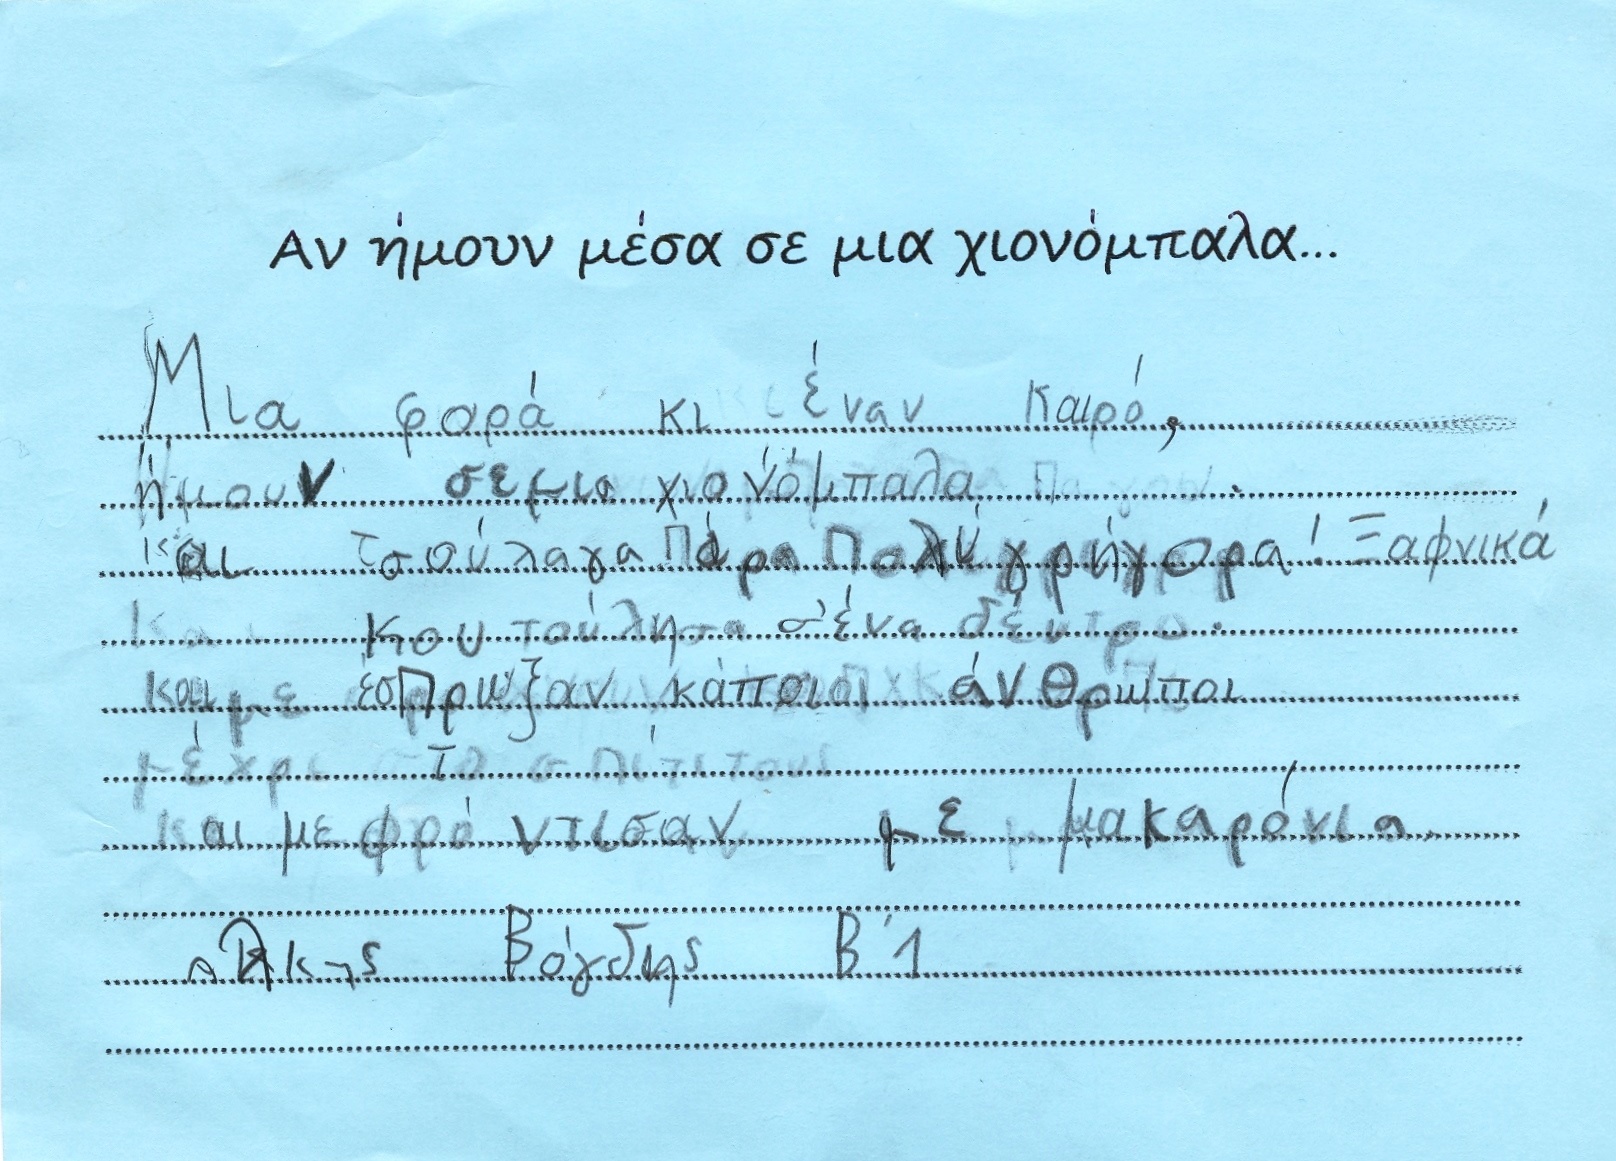 Αν ήμουν μέσα σε μια χιονόμπαλα...
Μια φορά κι έναν καιρό,
ήμουν σε μια χιονόμπαλα.
και τσούλαγα πάρα πολύ γρήγορα! Ξαφνικά
κουτούλησα σ' ένα δέντρο.
και με έσπρωξαν κάποιοι άνθρωποι
μέχρι στο σπίτι τους
και με φρόντισαν με μακαρόνια.
Άλκης Βόγδης Β΄1